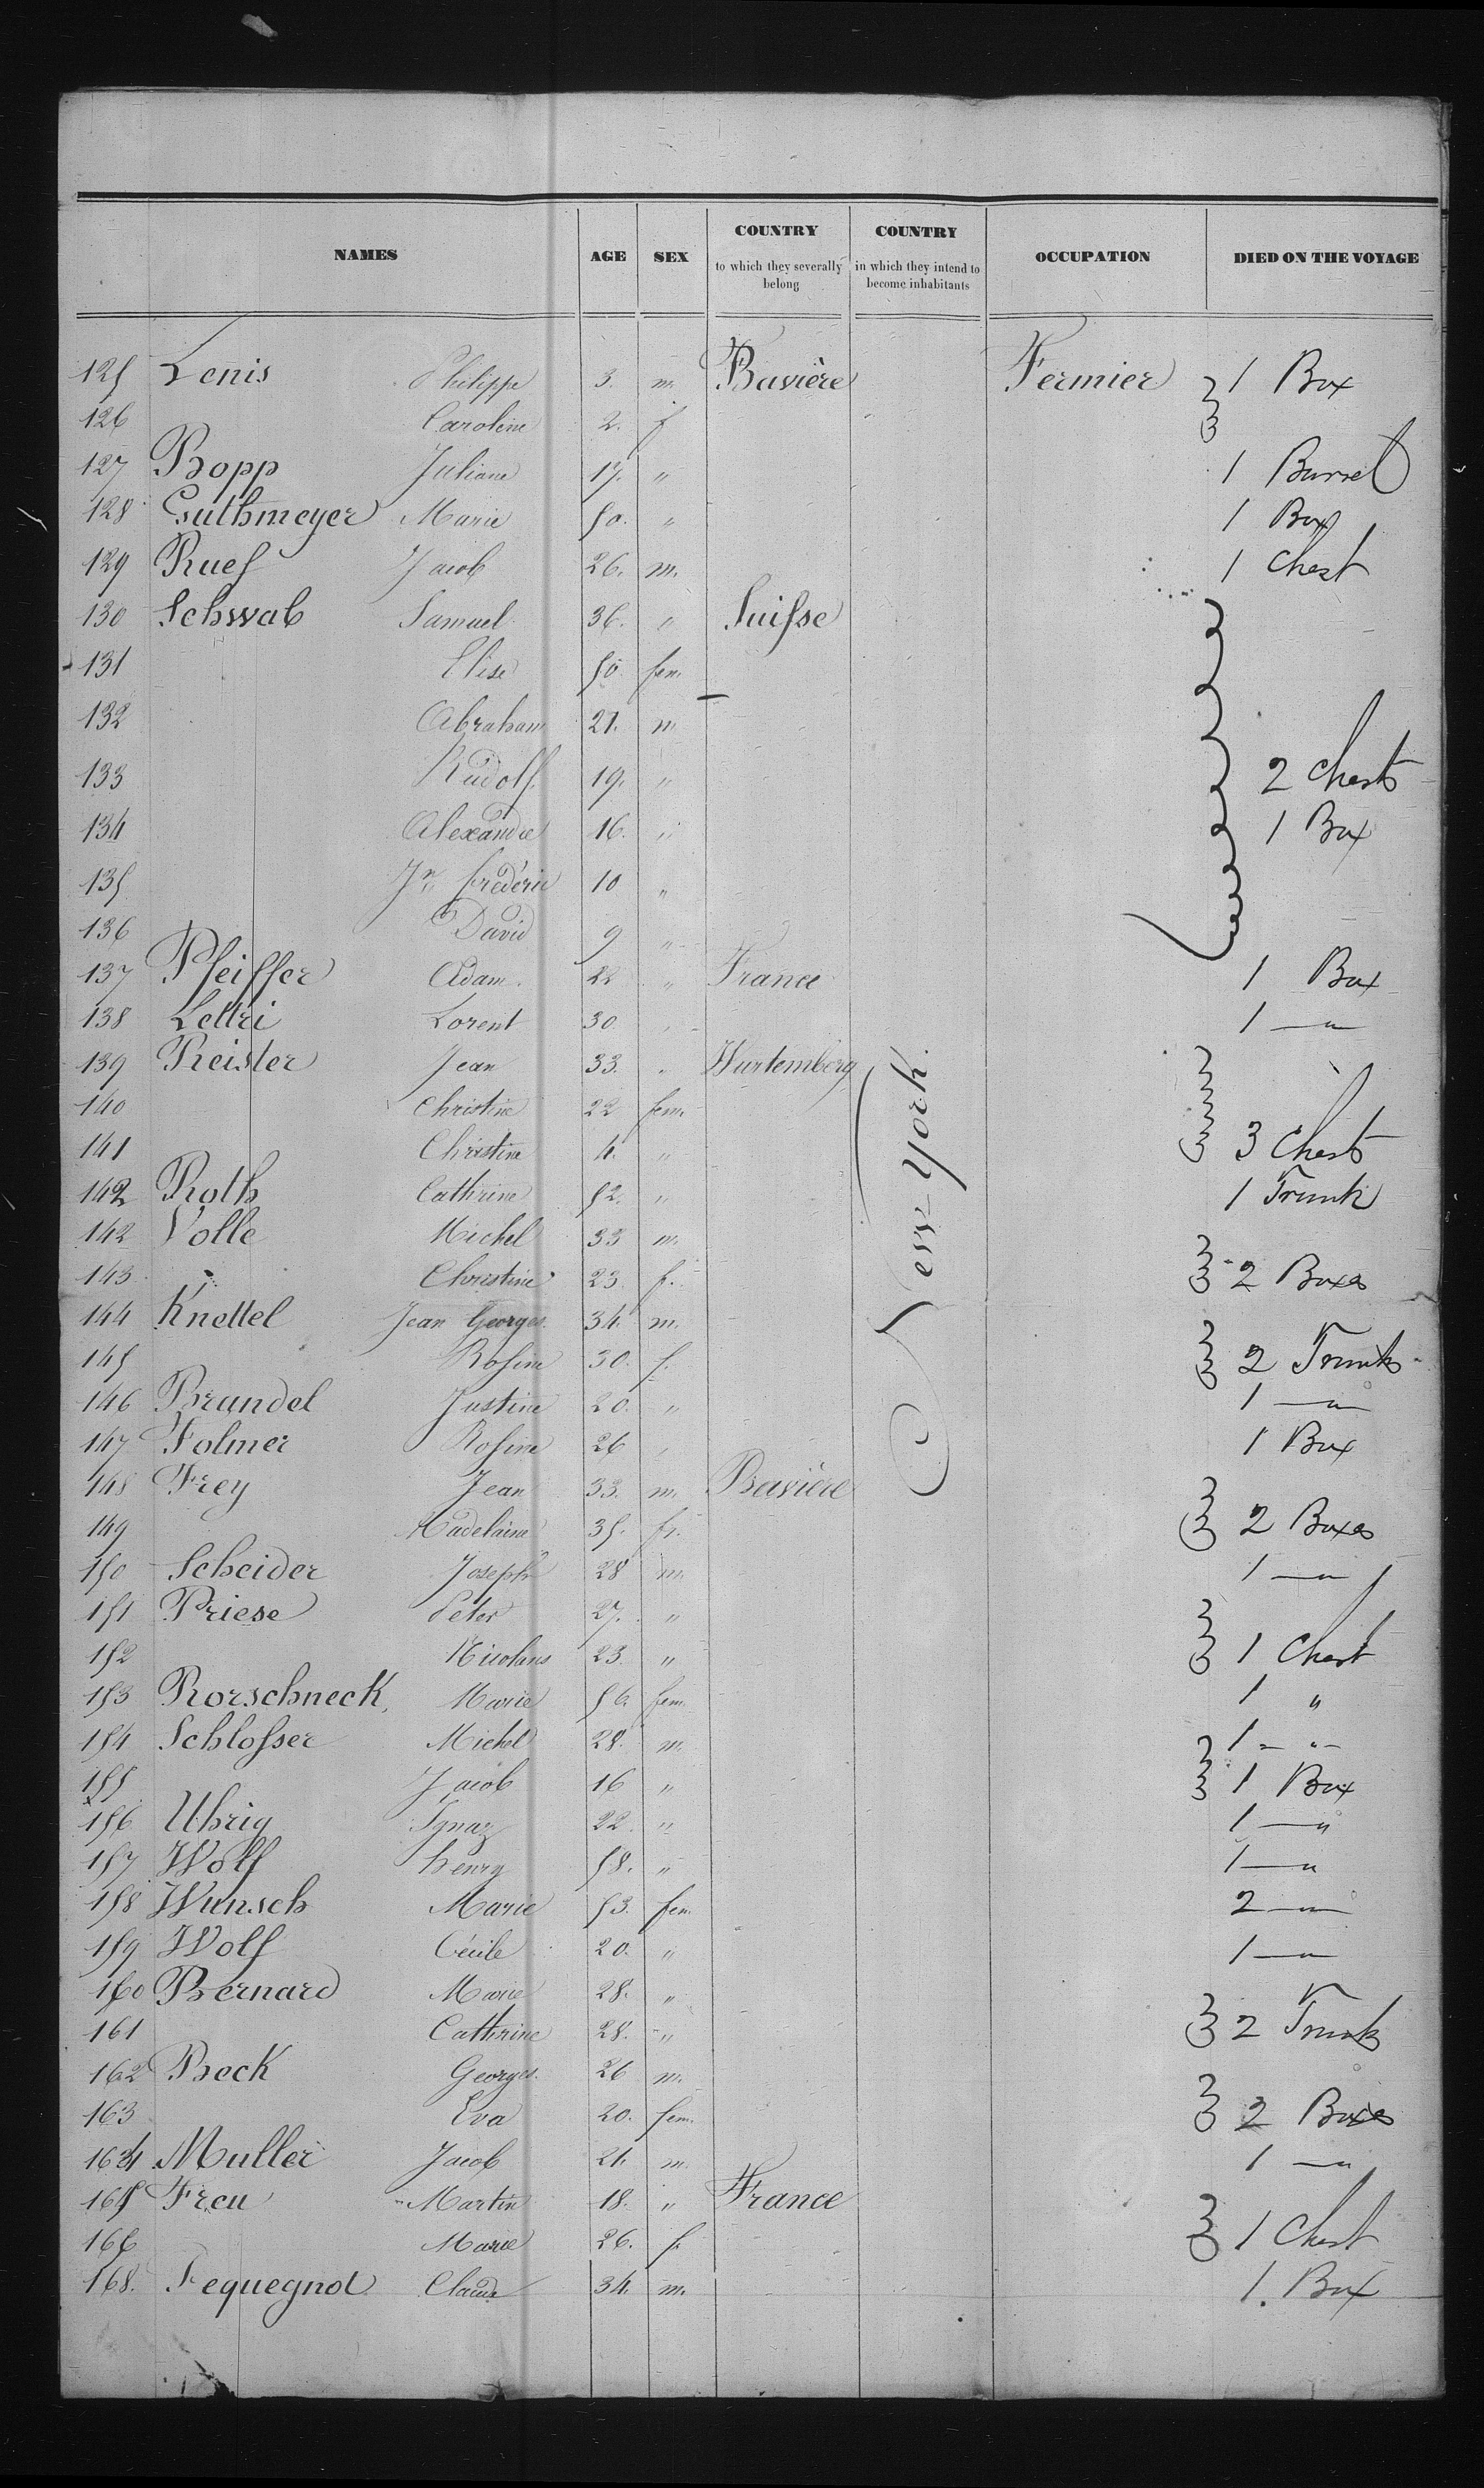 NAMES AGE SEX COUNTRY to which they severally belong COUNTRY in which they intend to become inhabitants OCCUPATION DIED ON THE VOYAGE
125 Lenis Philippe 3. m. Bavière Fermier 1 Box
126 Caroline 2. f
127 Bopp Juliane 17. " 1 Barrel
128 Guthmeyer Marie 50. " 1 Box
129 Ruef Jacob 26. m. 1 Chest
130 Schwab Samuel 36. " Suisse
131 Elise 50 fem.
132 Abraham 21. m
133 Rudolf 19. " 2 Chests
134 Alexandre 16. " 1 Box
135 Jn. frédéric 10 "
136 David 9 "
137 Pfeiffer Adam. 22 " France 1 Box
138 Lettri Lorent 30 " 1 —"
139 Reister Jean 33. " Wurtemberg
140 Christine 22 fem.
141 Christine 4. " 3 Chests
142 Roth Cathrine 52. " 1 Trunk
142 Volle Michel 33 m.
143 Christine 23 f. 2 Boxes
144 Knettel Jean Georges. 34. m.
145 Rosine 30. f. 2 Trunks
146 Brandel Justine 20. " 1 —"
147 Folmer Rosine 26 " 1 Box
148 Frey Jean 33. m. Bavière
149 Madelaine 35. f. 2 Boxes
150 Scheider Joseph 28 m. 1 —"
151 Priese Peter 27. "
152 Nicolaus 23 " 1 Chest
153 Rorschneck, Marie 56 fem. 1 "
154 Schlosser Michel 28. m. 1 - "-
155 Jacob 16 " 1 Box
156 Uhrig Ignaz 22. " 1 —"
157 Wolf henry 58. " 1 —"
158 Wunsch Marie 53. fem. 2 —"
159 Wolf Cécile 20. " 1 —"
160 Bernard Marie 28. "
161 Cathrine 28. " 2 Trunks
162 Beck Georges. 26 m.
163 Eva 20. fem. 2 Boxes
164 Muller Jacob 21. m. 1 —"
165 Freu Martin 18. " France
166 Marie 26. f. 1 Chest
168. Pequegnot Claude 34. m. 1. Box
New York.